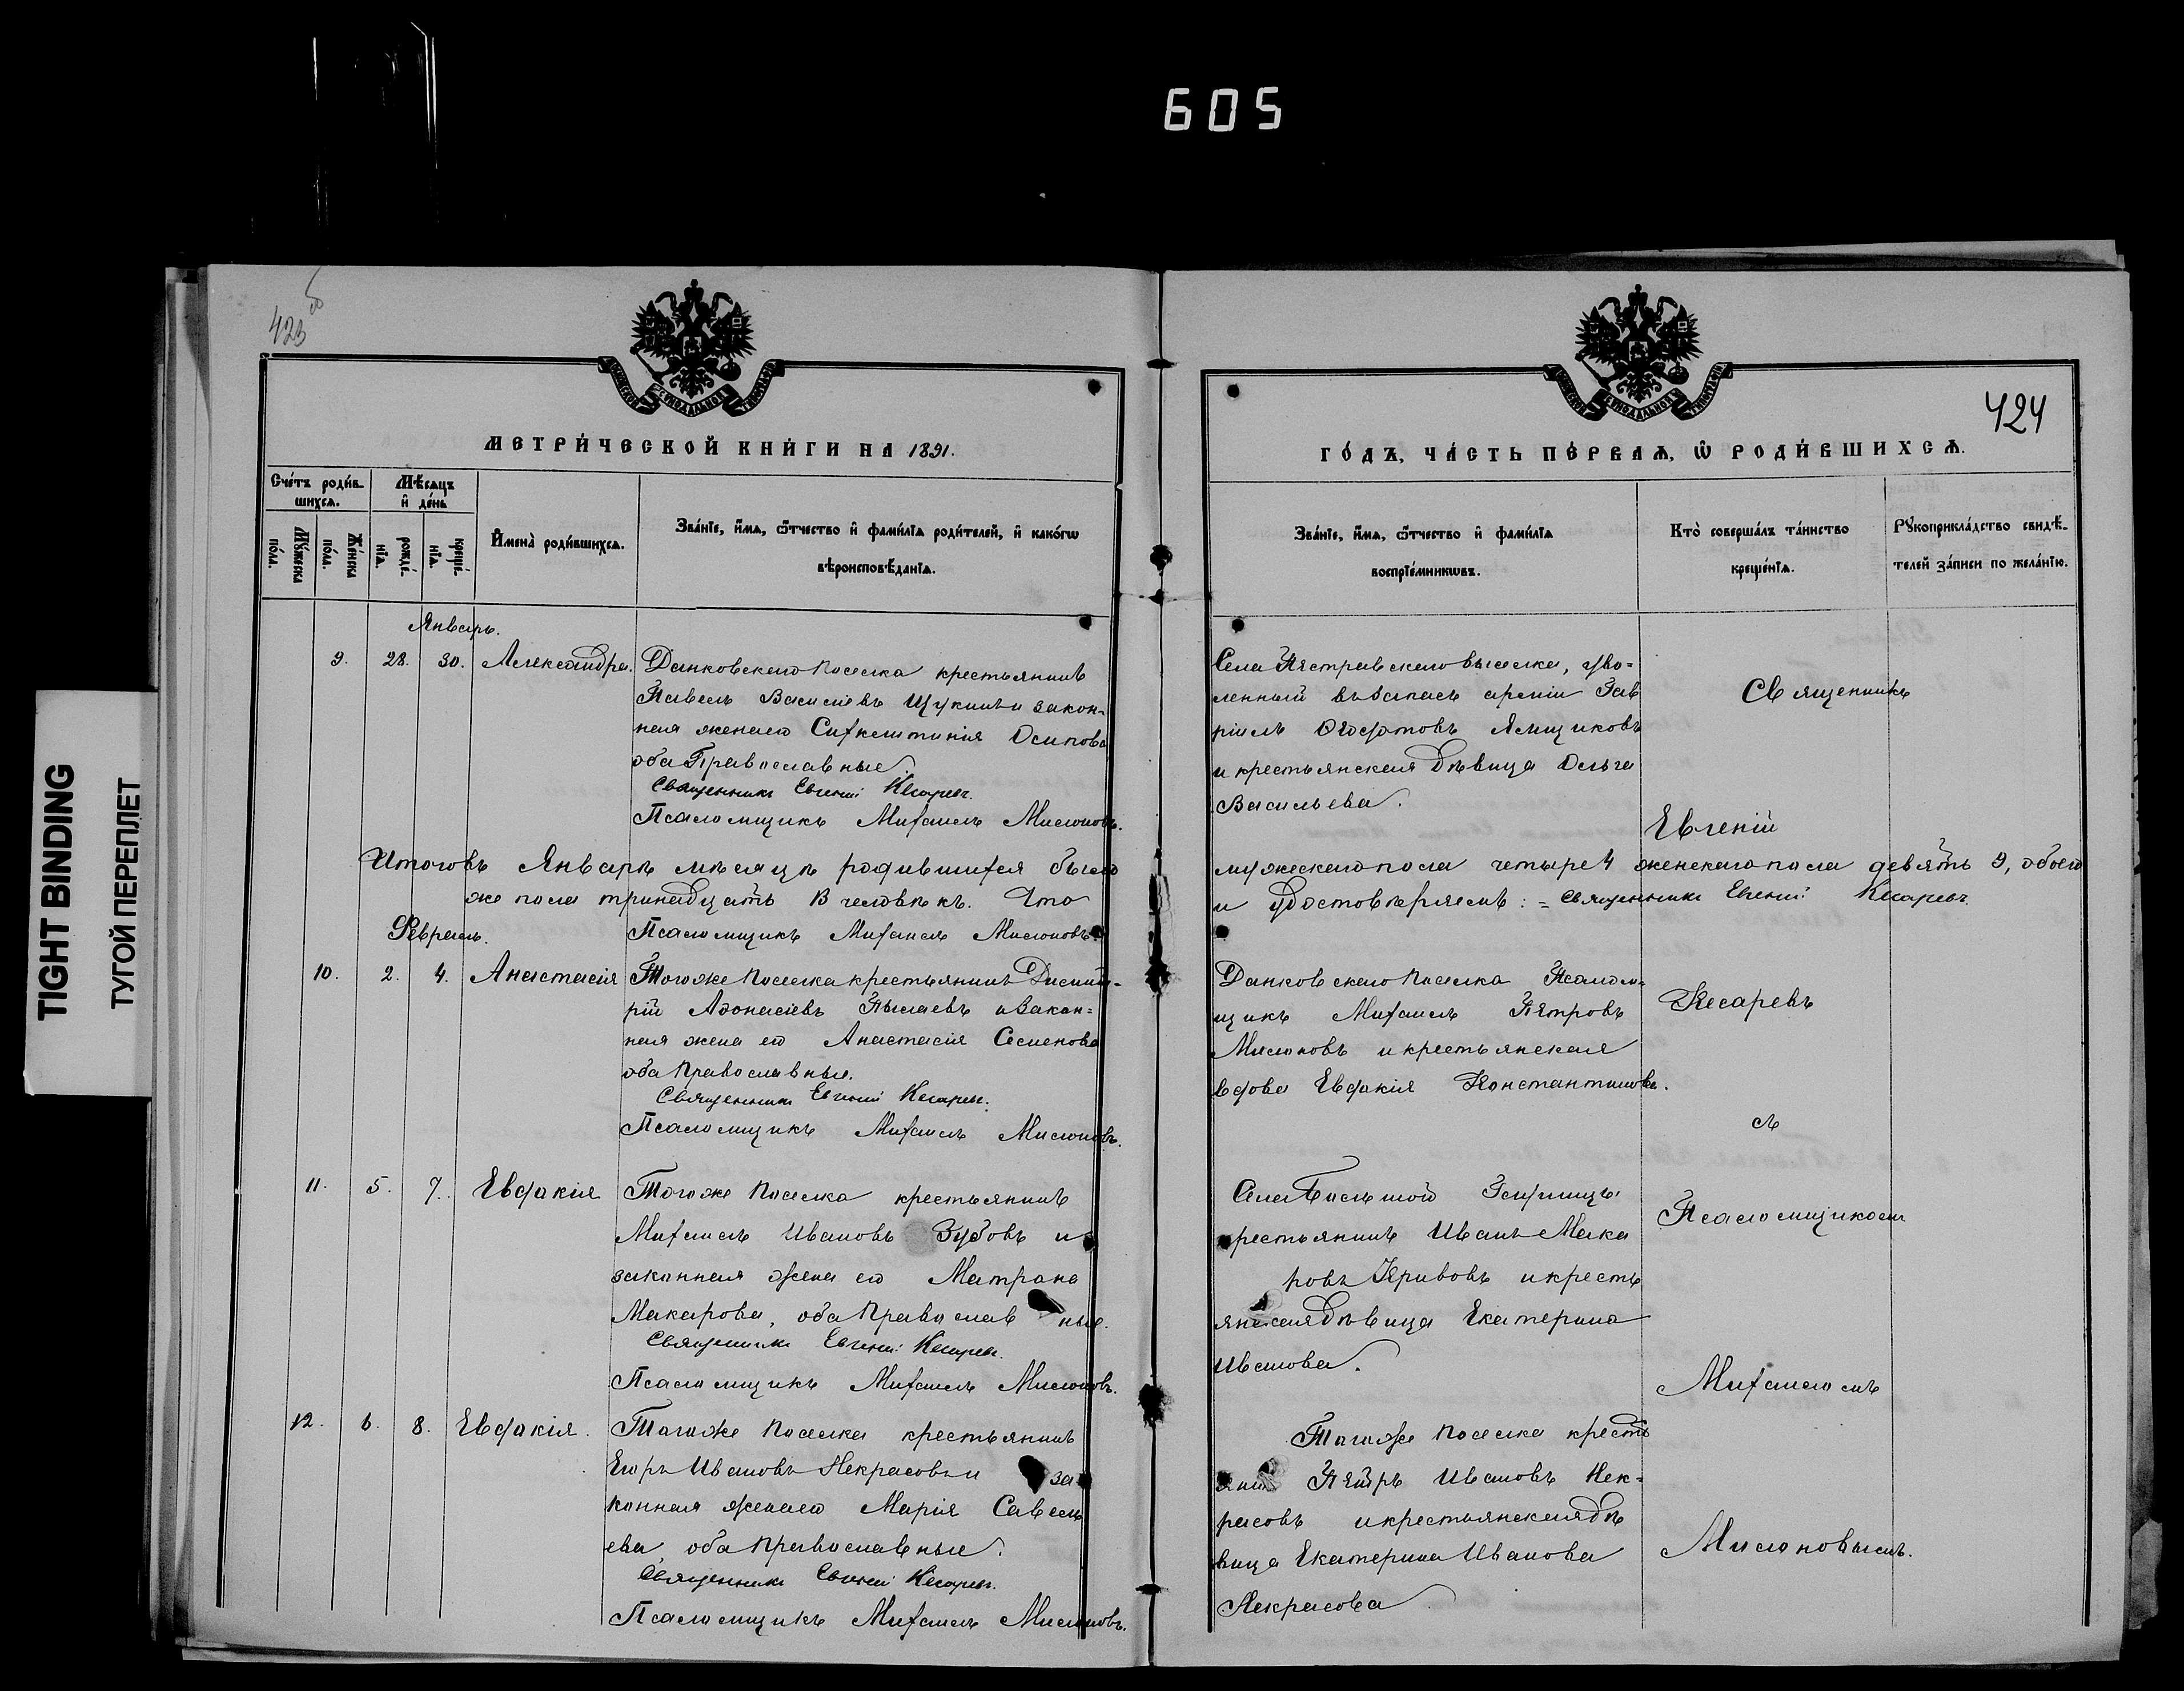 605
TIGHT BINDING
ТУГОЙ ПЕРЕПЛЕТ
423 об
МЕТРИЧЕСКОЙ КНИГИ НА 1891.
Счетъ родив-
шихся.
Мѣсяцъ
и день
Мужеска
пола.
Женска
пола.
рожде-
нія.
креще-
нія.
Имена родившихся.
Званіе, имя, отчество и фамилія родителей, и какогѡ
вѣроисповѣданія.
Январь.
9. 28. 30. Александра. Данковскаго поселка крестьянинъ
Павелъ Василіевъ Щукинъ и закон-
ная жена его Осипова
оба Православные.
Священникъ Евгеній Кесаревъ.
Псаломщикъ Михаилъ Милоновъ.
Итого въ Январѣ мѣсяцѣ родившихся было
же пола тринадцать 13 человѣкъ. Что
Февраль. Псаломщикъ Михаилъ Милоновъ.
10. 2. 4. Анастасія Тогоже поселка крестьянинъ Димит-
рій Афонасіевъ и закон=
ная жена его Анастасія Семенова
оба Православные.
Священникъ Евгеній Кесаревъ.
Псаломщикъ Михаилъ Милоновъ.
11. 5. 7. Евдокія Тогоже поселка крестьянинъ
Михаилъ Ивановъ Зубовъ и
законная жена его Матрона
Макарова, оба Православ ные.
Священникъ Евгеній Кесаревъ.
Псаломщикъ Михаилъ Милоновъ.
12. 6. 8. Евдокія. Тогоже поселка крестьянинъ
Егоръ Ивановъ Некрасовъ и за-
конная жена его Марія Савель
ева, оба православные.
Священникъ Евгеній Кесаревъ.
Псаломщикъ Михаилъ Милоновъ.
424
ГОДЪ, ЧАСТЬ ПЕРВАЯ, Ѡ РОДИВШИХСЯ.
Званіе, имя, отчество и фамилія
воспріемникωвъ.
Кто совершалъ таинство
крещенія.
Рукоприкладство свидѣ-
телей записи по желанію.
Села выселка, уво=
ленный въ запасъ арміи Гав
ріилъ Ямщиковъ
и крестьянская дѣвица Ольга
Васильева.
Священникъ
Евгеній
мужескаго пола четыре 4 женскаго пола девять 9, обоего
и удостовѣряемъ: = Священникъ Евгеній Кесаревъ.
Данковскаго поселка Псалом-
щикъ Михаилъ Петровъ
Милоновъ и крестьянская
вдова Евдокія Константинова.
Кесаревъ
съ
Села Большой
крестьянинъ Иванъ Мака
ровъ Кривовъ и кресть
янская дѣвица Екатерина
Иванова.
Псаломщикомъ
Михаиломъ
Тогоже поселка кресть
янинъ Петръ Ивановъ Нек=
расовъ и крестьянская дѣ
вица Екатерина Иванова
Некрасова.
Милоновымъ.